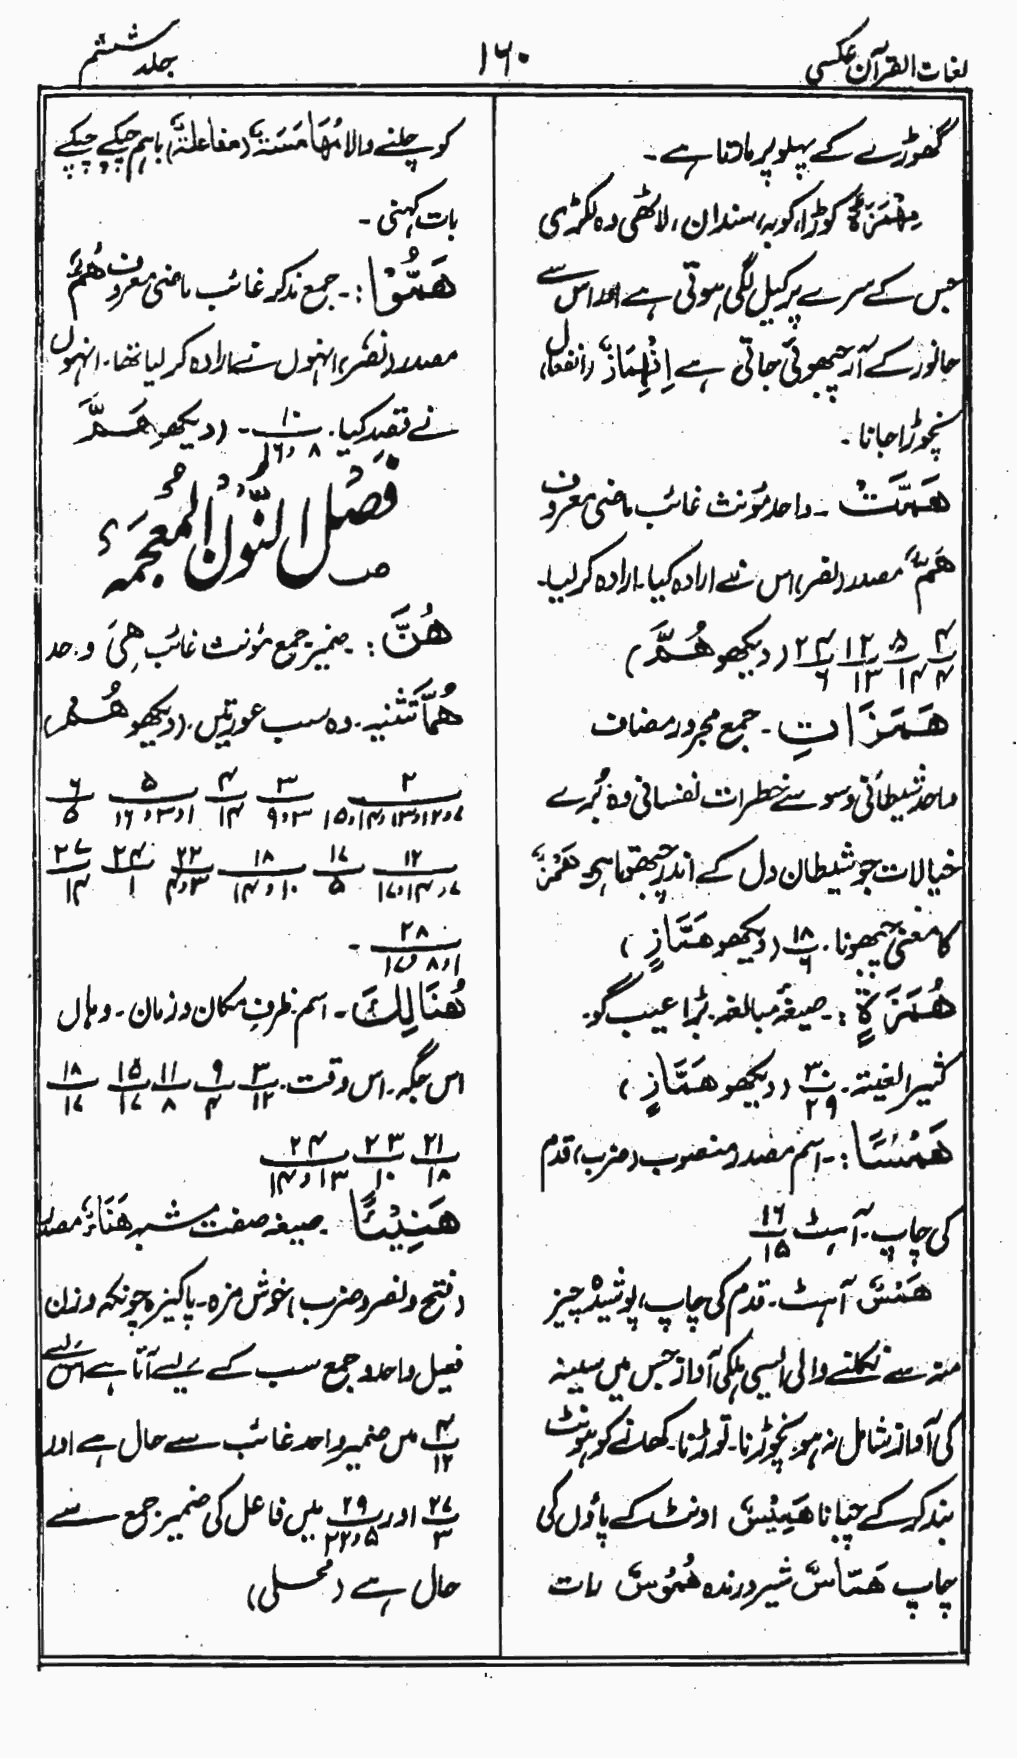 لغات القرآن عکسی
۱۶۰
جلد ششم
گھوڑے کے پہلو پر مارتا ہے۔
مِهْمَزَةٌ کوڑا، کوبہ، سندان، لاٹھی وہ لکڑی
جس کے سرے پر کیل لگی ہوتی ہے اور اس سے
جانور کے آر چبھوئی جاتی ہے اِنْهِمَازٌ (انفعال)
نچوڑا جانا۔
هَمَّتْ ۔ واحد مؤنث غائب ماضی معروف
هَمٌّ مصدر (نصر) اس نے ارادہ کیا۔ ارادہ کر لیا۔
۴/۴ ۵/۱۴ ۱۲/۱۳ ۲۴/۶ (دیکھو هُمَّ)
هَمَزَاتِ ۔ جمع مجرور مضاف
واحد شیطانی وسوسے خطرات نفسانی وہ بُرے
خیالات جو شیطان دل کے اندر چبھوتا ہے هَمْزٌ
کا معنی چبھونا۔ ۱۸/۶ (دیکھو هَمَّازٍ)
هُمَزَةٍ :۔ صیغۂ مبالغہ بڑا عیب گو۔
کثیر الغیبۃ۔ ۳۰/۲۹ (دیکھو هَمَّازٍ)
هَمْسًا :۔ اسم مصدر منصوب (ضرب) قدم
کی چاپ۔ آہٹ ۱۶/۱۵
هَمْسٌ آہٹ۔ قدم کی چاپ، پوشیدہ چیز
منہ سے نکلنے والی ایسی ہلکی آواز جس میں سینہ
کی آواز شامل نہ ہو نچوڑنا۔ توڑنا۔ کھانے کو ہونٹ
بند کر کے چبانا هَمِيْسٌ اونٹ کے پاؤں کی
چاپ هَمَّاسٌ شیر درندہ هُمُوْسٌ رات
کو چلنے والا مُهَامَسَةٌ (مفاعلۃ) باہم چپکے چپکے
بات کہنی۔
هَمُّوْا :۔ جمع مذکر غائب ماضی معروف هَمٌّ
مصدر (نصر) انہوں نے ارادہ کر لیا تھا۔ انہوں
نے قصد کیا۔ ۱۰/۸ و ۱۶ ۔ (دیکھو هَمَّ
فَصْلُ النُّوْنِ الْمُعْجَمَةِ
هُنَّ :۔ ضمیر جمع مؤنث غائب هِیَ واحد
هُمَا تثنیہ۔ وہ سب عورتیں۔ (دیکھو هُمْ)
۲/۷ و ۱۲ و ۱۳ و ۱۴ و ۱۵ ۳/۳ و ۹ ۴/۱۴ ۵/۱ و ۳ و ۱۶ ۶/۵
۱۲/۷ و ۱۴ و ۱۷ ۱۷/۵ ۱۸/۱۰ و ۱۴ ۲۲/۳ و ۴ ۲۴/۱ ۲۷/۱۴
۲۸/۱ و ۸ و ۱۷ ۔
هُنَالِكَ ۔ اسم ظرفِ مکان و زمان۔ وہاں
اس جگہ۔ اس وقت۔ ۳/۱۲ ۹/۴ ۱۱/۸ ۱۵/۱۷ ۱۸/۱۷
۲۱/۱۸ ۲۳/۱۰ ۲۴/۱۳ و ۱۴
هَنِيْئًا ۔ صیغہ صفت مشبہ هَنَاءٌ مصدر
(فتح و نصر و ضرب) خوش مزہ۔ پاکیزہ چونکہ وزن
فعیل واحد و جمع سب کے لیے آتا ہے اس لیے
۴/۱۲ میں ضمیر واحد غائب سے حال ہے اور
۲۷/۳ اور ۲۹/۵ و ۲۲ میں فاعل کی ضمیر جمع سے
حال ہے (محلی)